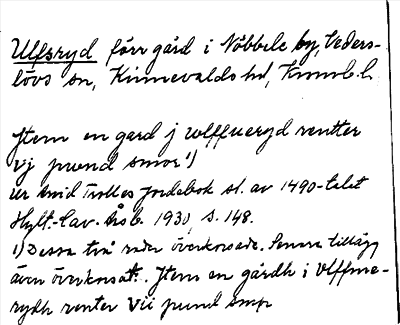 Ulfsryd förr gård i Nöbbele by, Veders-
lövs sn, Kinnevalds hd, Kronob. l.
Jtem en gard j wlffueryd rentter
vj pund smör 1)
Ur Arvid Trolles jordebok sl. av 1490-talet
Hylt.-Cav. Årsb. 1930, s. 148.
1) Dessa två rader överkorsade. Senare tillägg
även överkorsat: Jtem en gårdh i Vlffwe-
rydh renter Vii pund smør